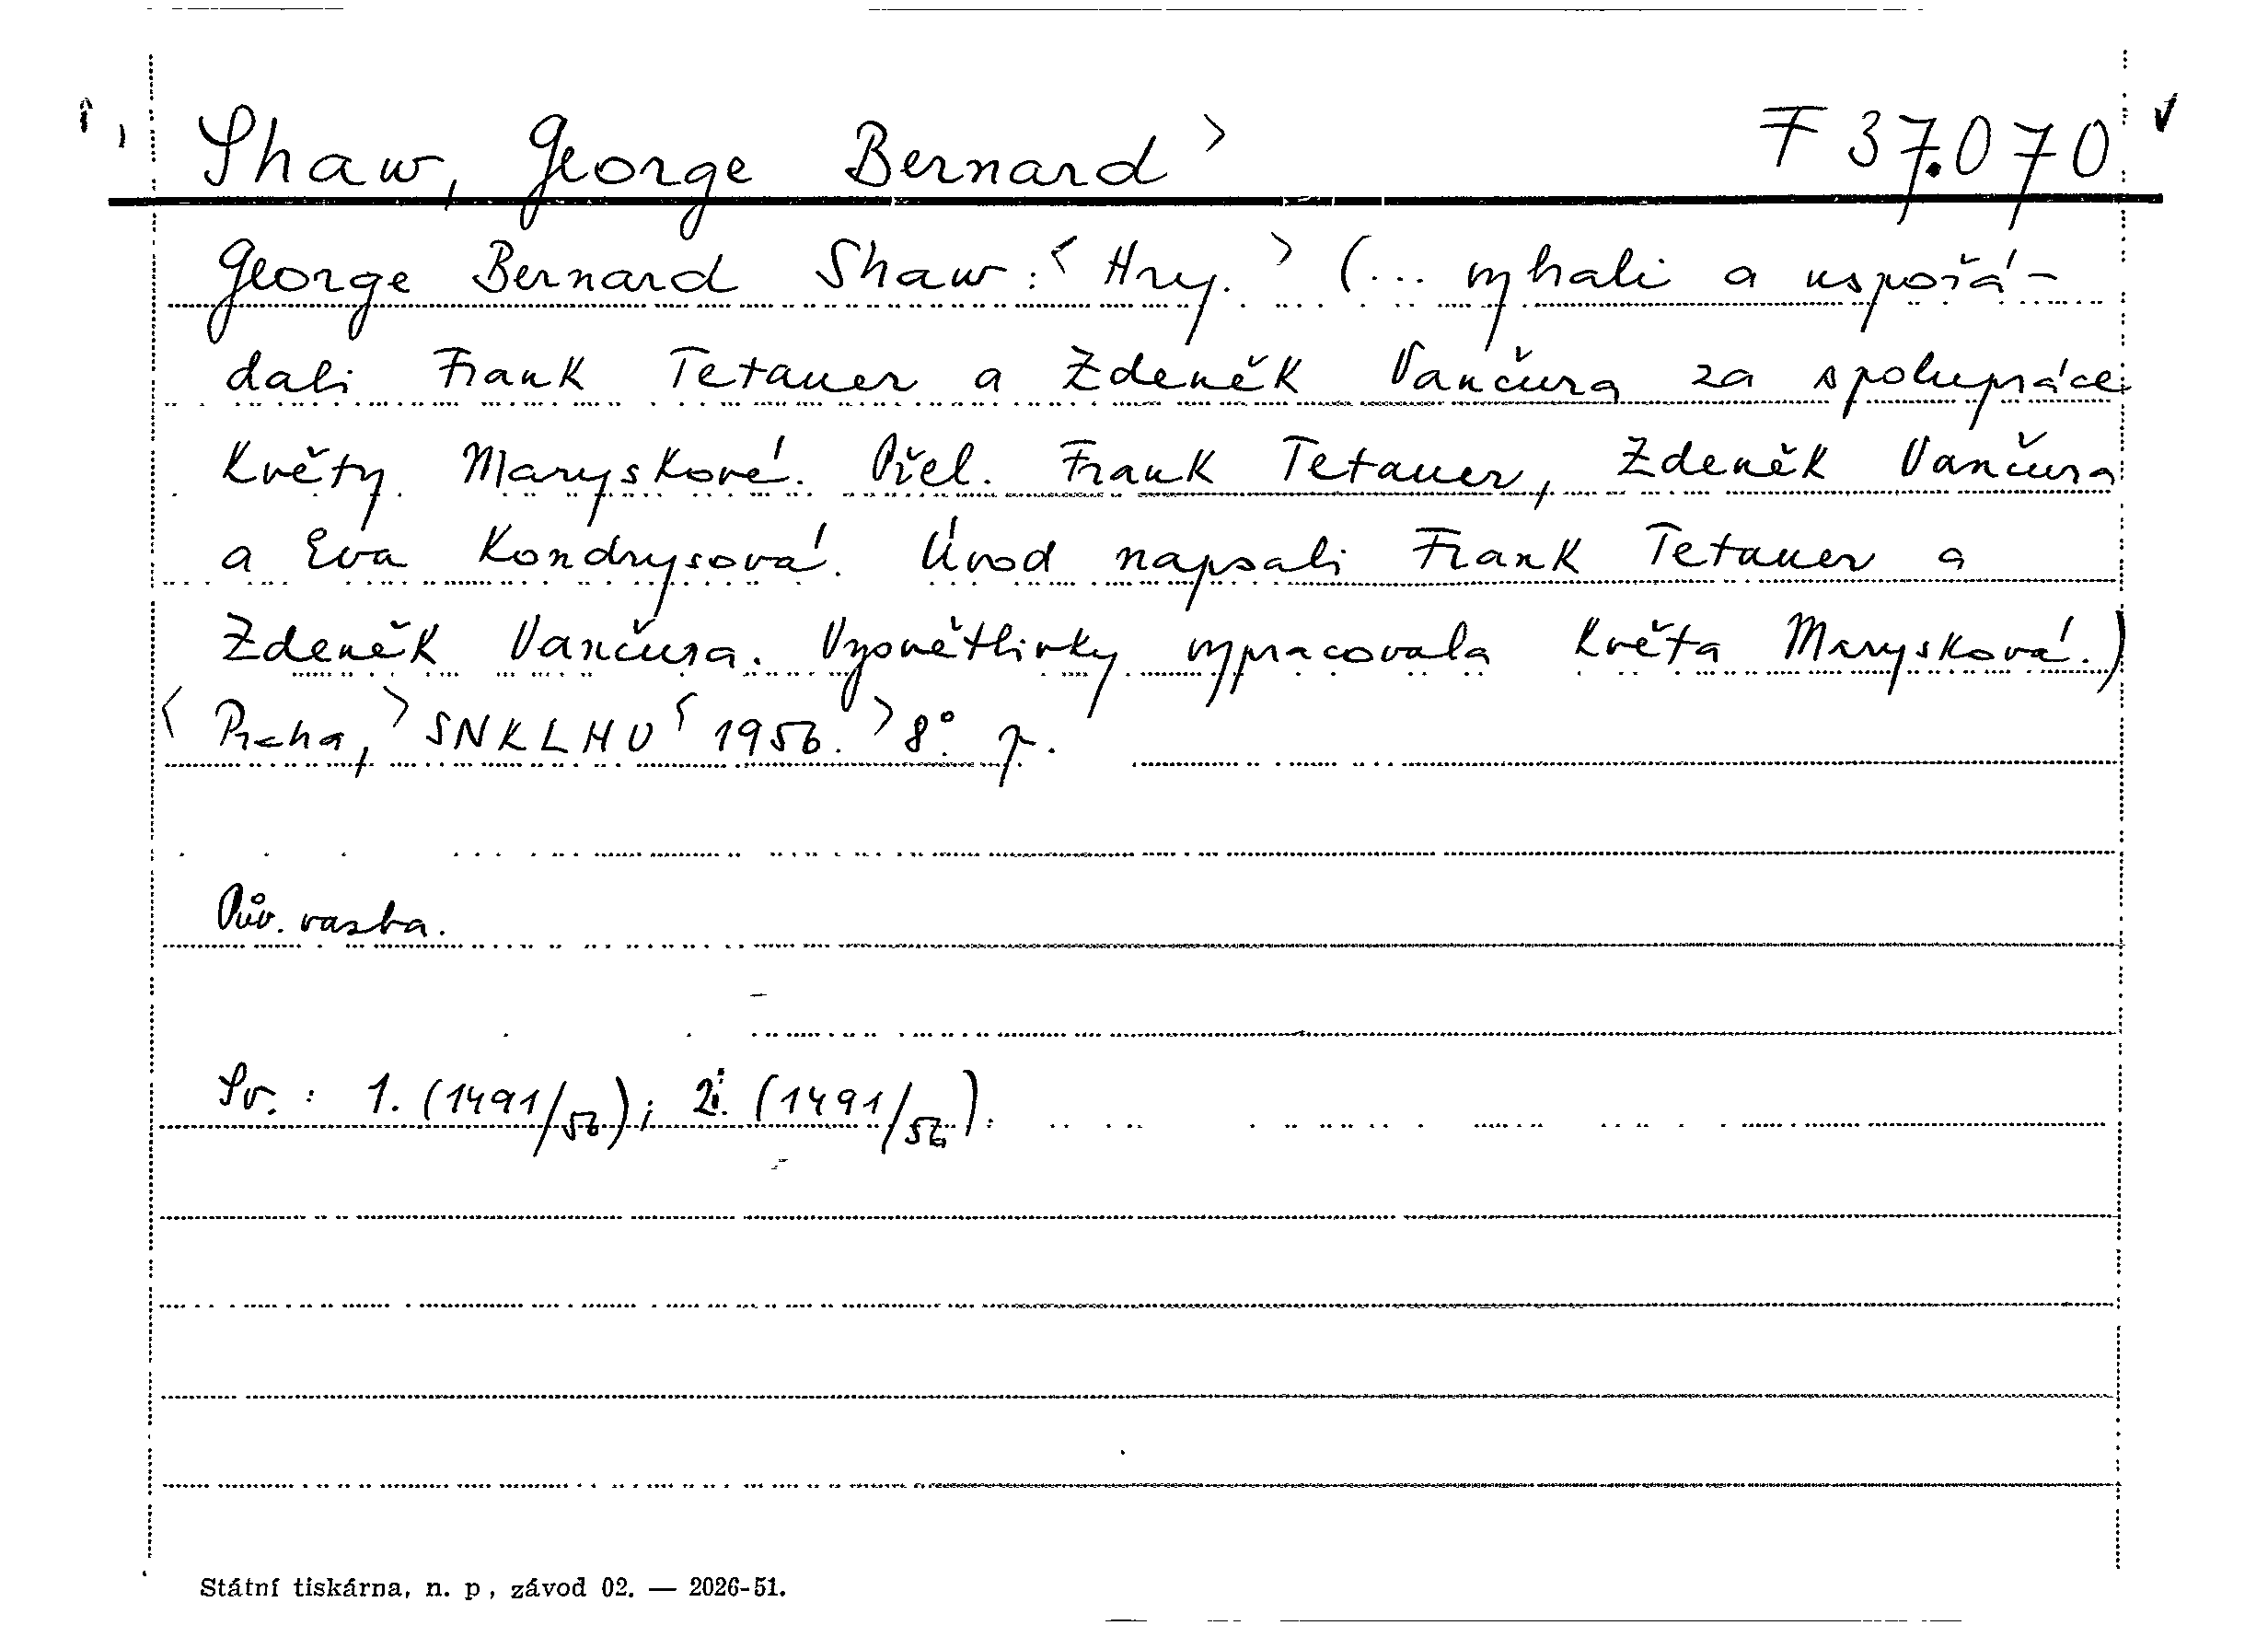 Shaw, George Bernard > F 37.070
George Bernard Shaw: < Hry. > (... vybrali a uspořá-
dali Frank Tetauer a Zdeněk Vančura za spolupráce
Květy Maryskové. Přel. Frank Tetauer, Zdeněk Vančura
a Eva Kondrysová. Úvod napsali Frank Tetauer a
Zdeněk Vančura. Vysvětlivky vypracovala Květa Marysková.)
< Praha, > SNKLHU < 1956. > 8°. p.
Pův. vazba.
Sv. : 1. (1491/56); 2. (1491/56).
Státní tiskárna, n. p, závod 02. — 2026-51.